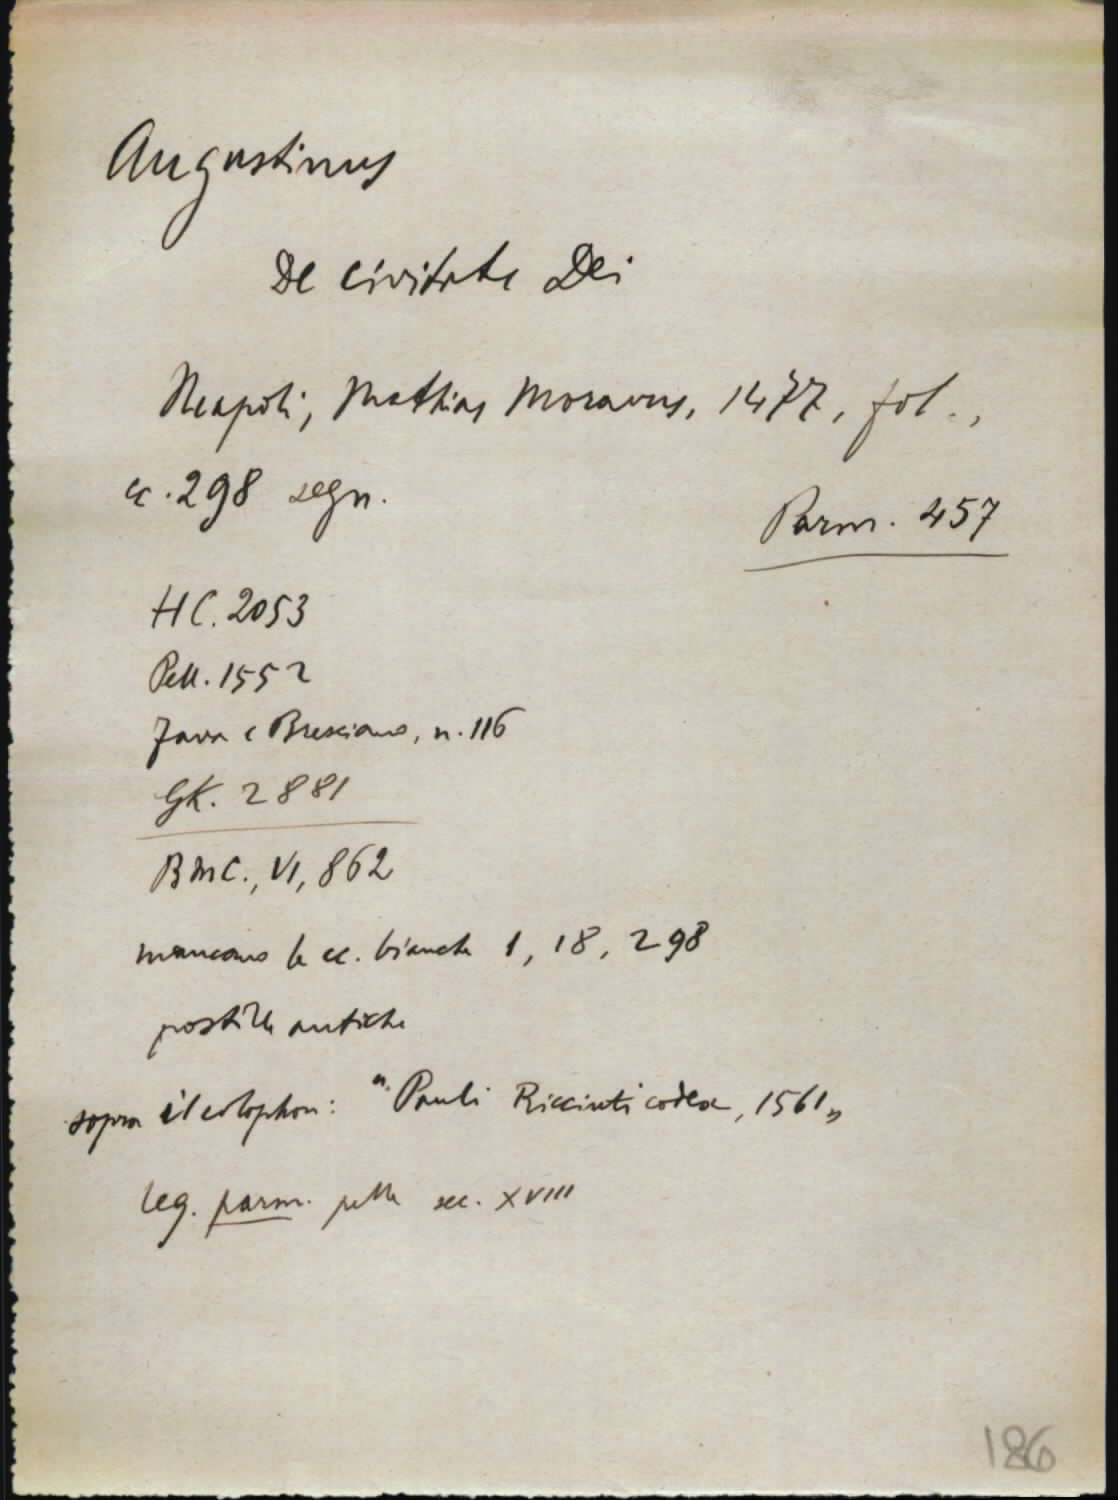 Augustinus
De civitate Dei
Neapoli, Mathias Moravus, 1477, fol.,
cc. 298 segn.
Parm. 457
HC. 2053
Pell. 1552
Fava e Bresciano, n. 116
GK. 2881
BMC., VI, 862
mancano le cc. bianche 1, 18, 298
postille antiche
sopra il colophon: "Pauli Ricciuti codex, 1561„
leg. parm. pelle sec. XVIII
186